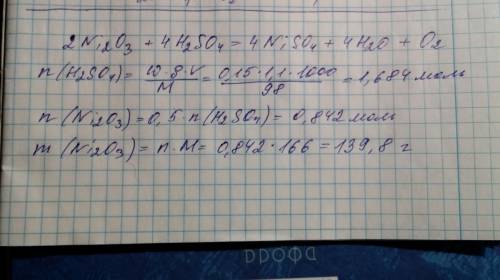 2 Ni2O3 + 4H2SO4 = 4NiSO4 + 4H2O + O2
n(H2SO4) = w·ρ·V/M = 0,15·1,1·1000/98 = 1,684 моль
n(Ni2O3) = 0,5·n(H2SO4) = 0,842 моль
m(Ni2O3) = n·M = 0,842·166 = 139,8 г
дрофа